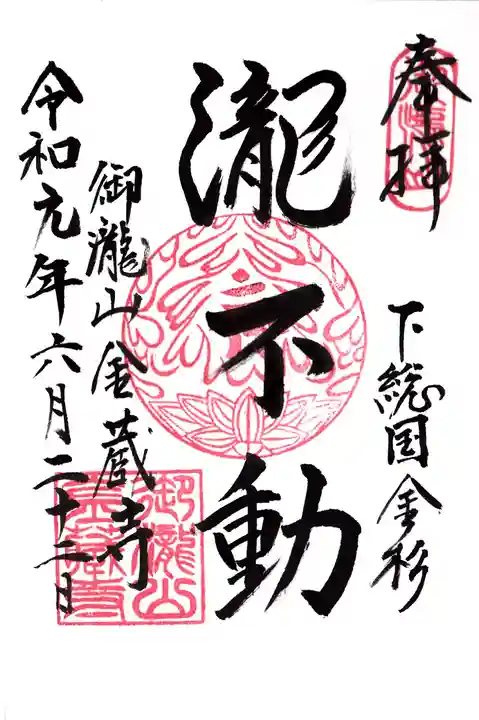 奉拝
下総国金杉
瀧不動
御瀧山金蔵寺
令和元年六月二十三日
御瀧山
金蔵寺